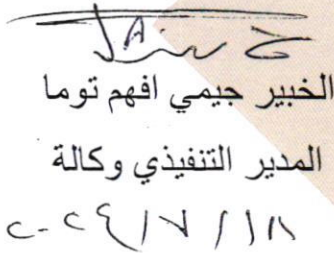 الخبير جيمي افهم توما
المدير التنفيذي وكالة
٢٠٢٤/٧/١٨